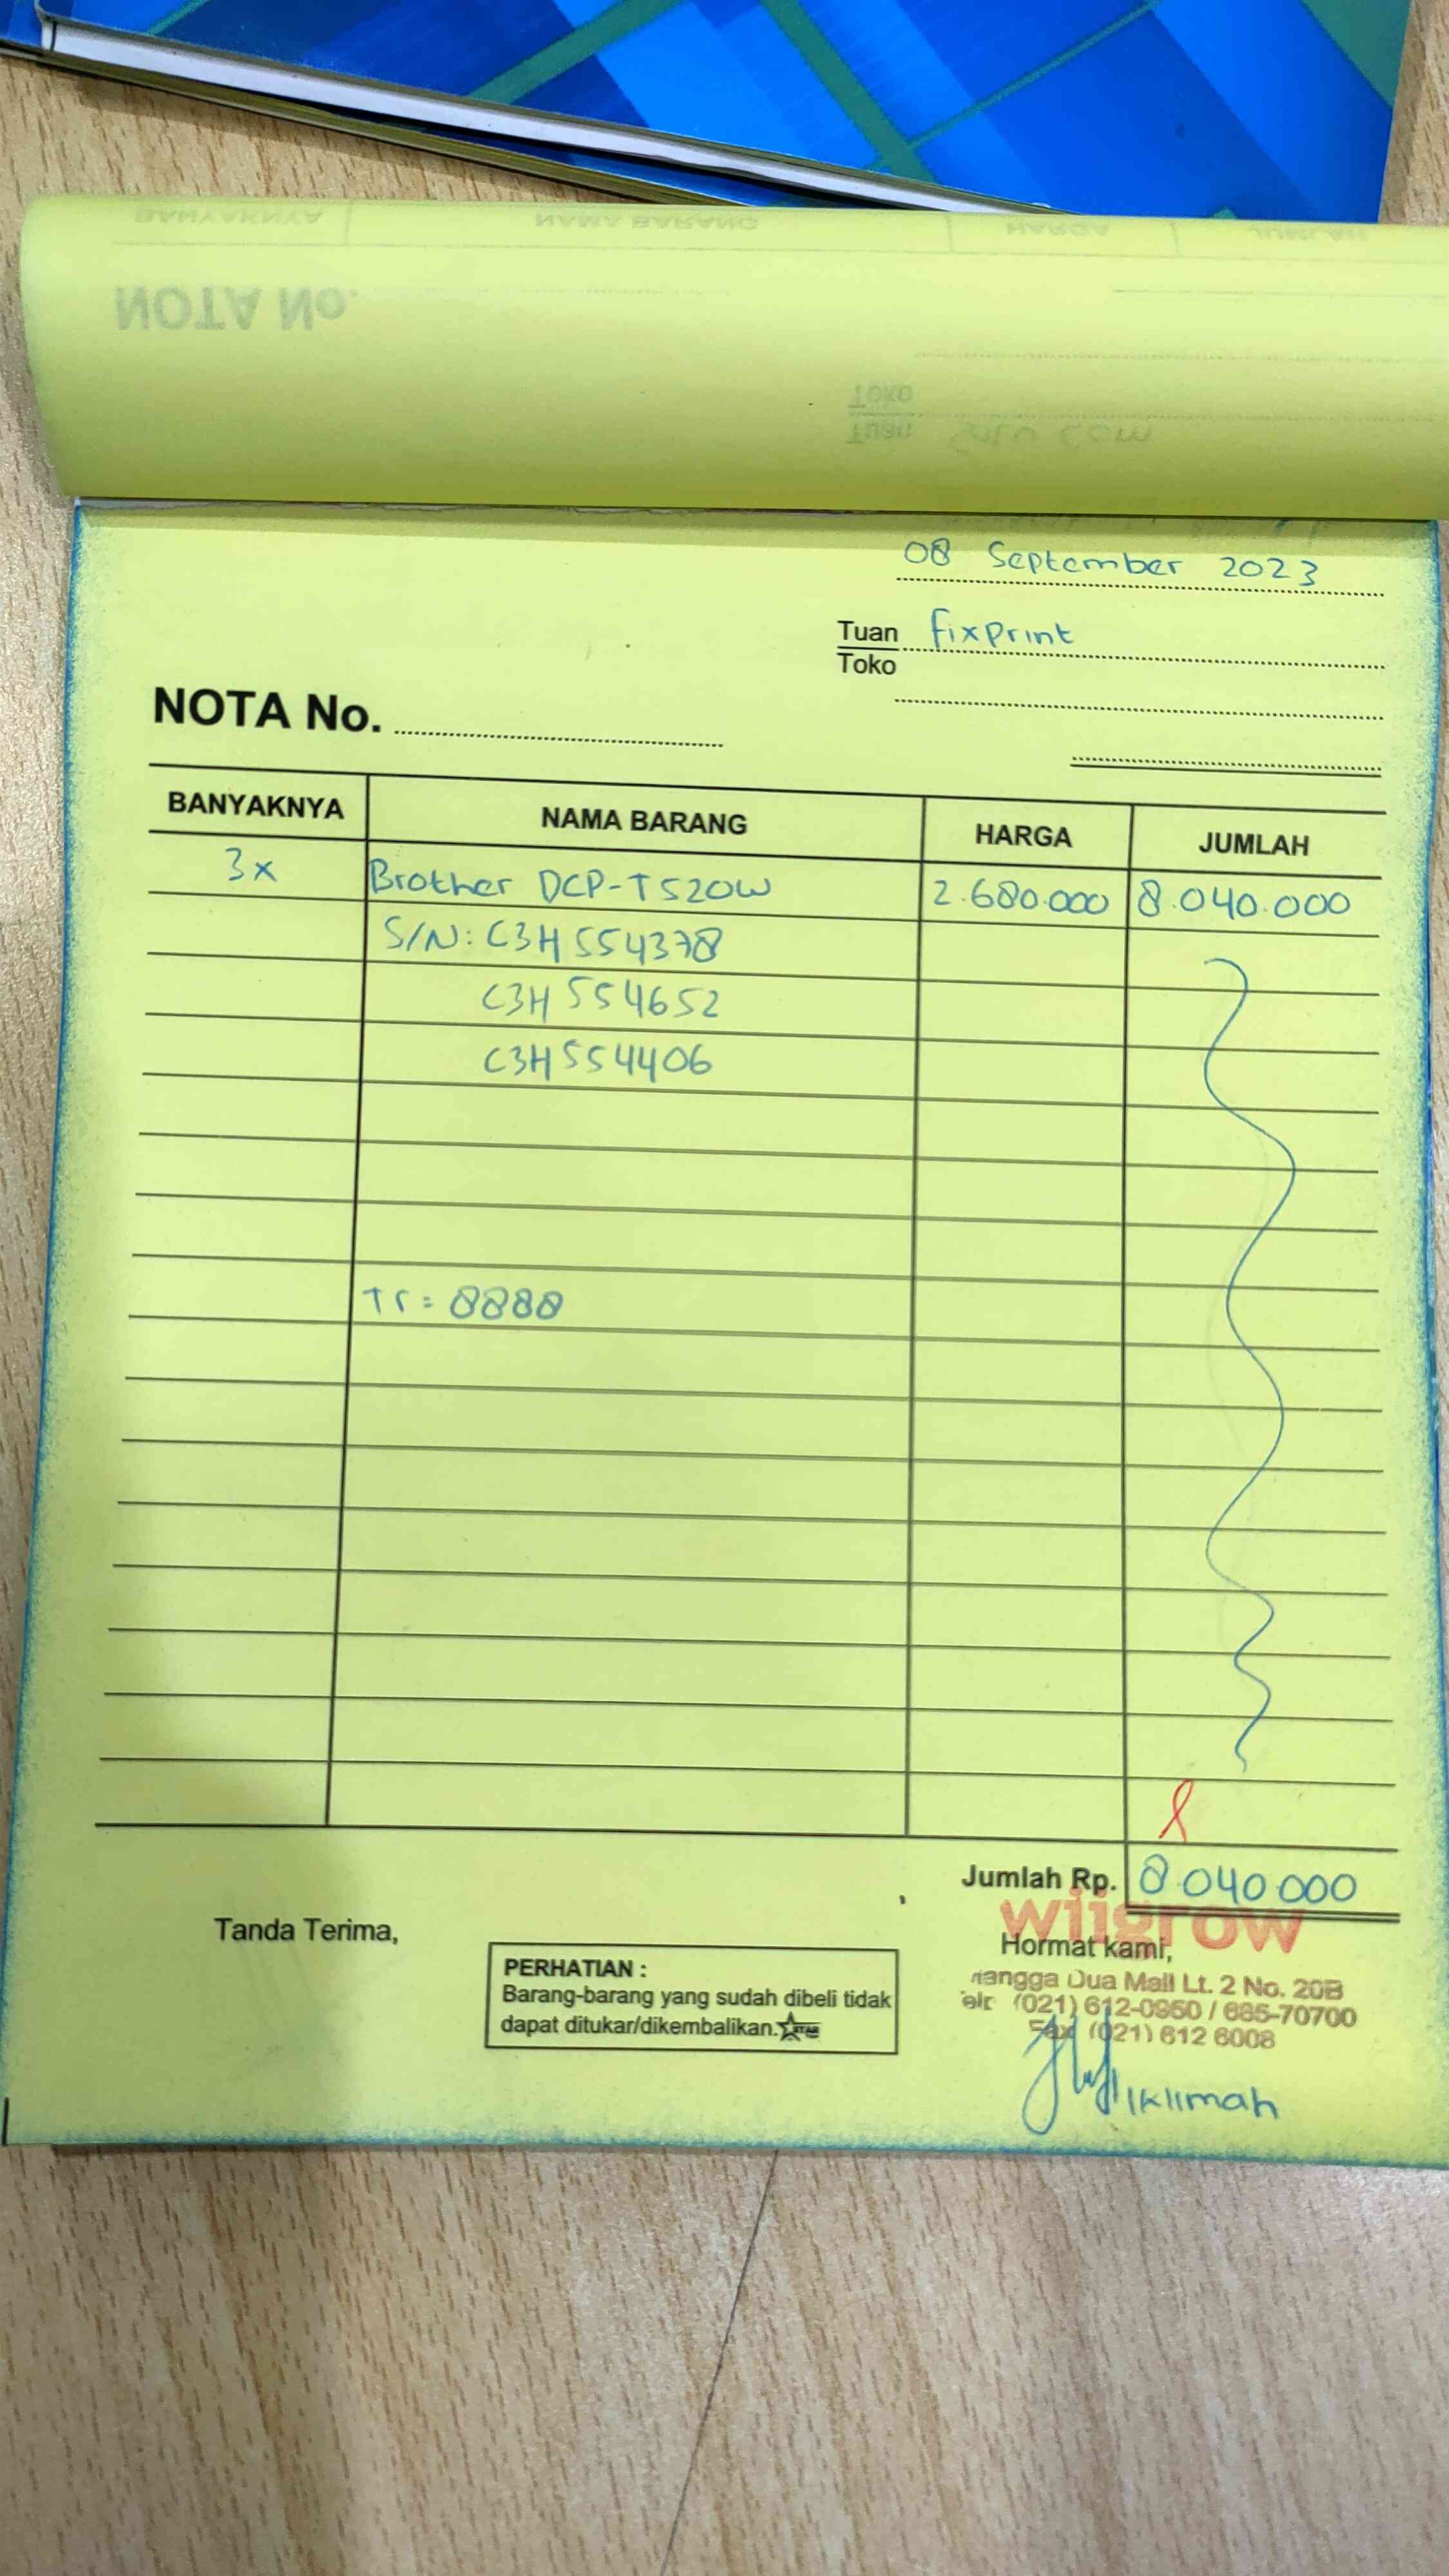 08 September 2023
Tuan fixprint
Toko
NOTA No.
BANYAKNYA NAMA BARANG HARGA JUMLAH
3x Brother DCP-T520W 2.680.000 8.040.000
S/N: C3H554378
C3H554652
C3H554406
Tr = 8888
Jumlah Rp. 8.040.000
wiigrow
Tanda Terima, Hormat kami,
PERHATIAN :
Barang-barang yang sudah dibeli tidak
dapat ditukar/dikembalikan.
Mangga Dua Mall Lt. 2 No. 20B
Telp (021) 612-0950 / 685-70700
Fax (021) 612 6008
Iklimah